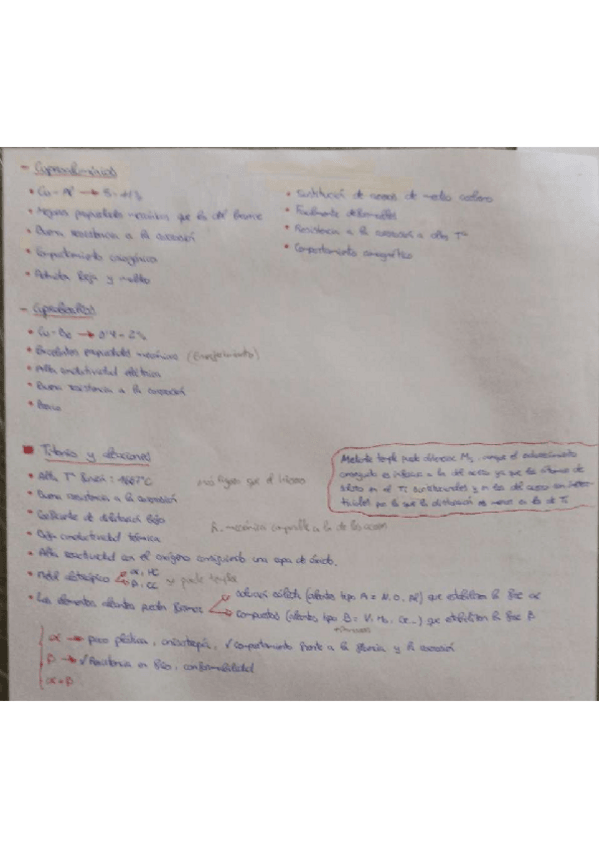 - Cuproaluminios
• Cu-Al → 5-11%
• Mejores propiedades mecánicas que las del bronce
• Buena resistencia a la corrosión
• Comportamiento criogénico
• Aptitud forja y moldeo
• Sustitución de aceros de medio carbono
• Fácilmente deformables
• Resistencia a la corrosión a alta Tª
• Comportamiento amagnético
- Cuproberilios
• Cu-Be → 0'4-2%
• Excelentes propiedades mecánicas (Envejecimiento)
• Alta conductividad eléctrica
• Buena resistencia a la corrosión
Titanio y aleaciones
• Alta Tª fusión:
más ligero que el
• Buena resistencia a la corrosión
• Coeficiente de dilatación bajo
R. mecánica comparable a la de los aceros
• Baja conductividad térmica
• Alta reactividad con el oxígeno consiguiendo una capa de óxido.
• Metal alotrópico α, HC
β, CC → puede temple
• Los elementos aleantes pueden formar
solución sólida (aleantes tipo A = N, O, Al) que estabilizan la fase α
compuestos (aleantes tipo B = V, Mo, Cr...) que estabilizan la fase β
Mediante temple puede obtenerse Ms, aunque el endurecimiento
conseguido es inferior a la del acero ya que los átomos de
soluto en el Ti son sustitucionales y en los del acero son inters-
ticiales, por lo que la distorsión es menor en los de Ti
α → poco plástica, anisotropía, ✓ comportamiento frente a la fluencia y la corrosión
β → ✓ Resistencia en frío, conformabilidad
α+β